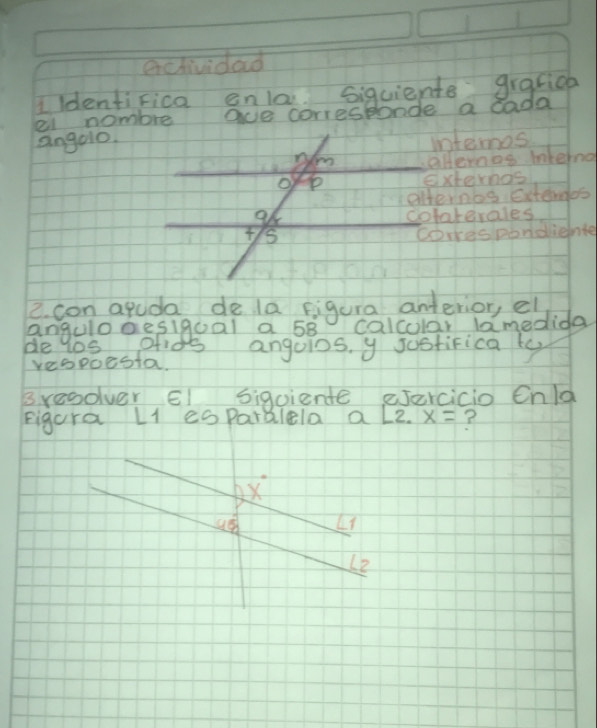 Actividad
1 Identifica en la siguiente grafica
el nombre que corresponde a cada
angulo.
internos
n m
alternos interno
externos
o p
alternos Externos
q r
colaterales
t s
correspondiente
2. con ayuda de la figura anterior, el
angulo o es igual a 58 calcular la medida
de los otros angulos. y justifica tu
respoesta.
3 resolver El siguiente ejercicio En la
Figura L1 es Paralela a L2. X = ?
X°
L1
L2